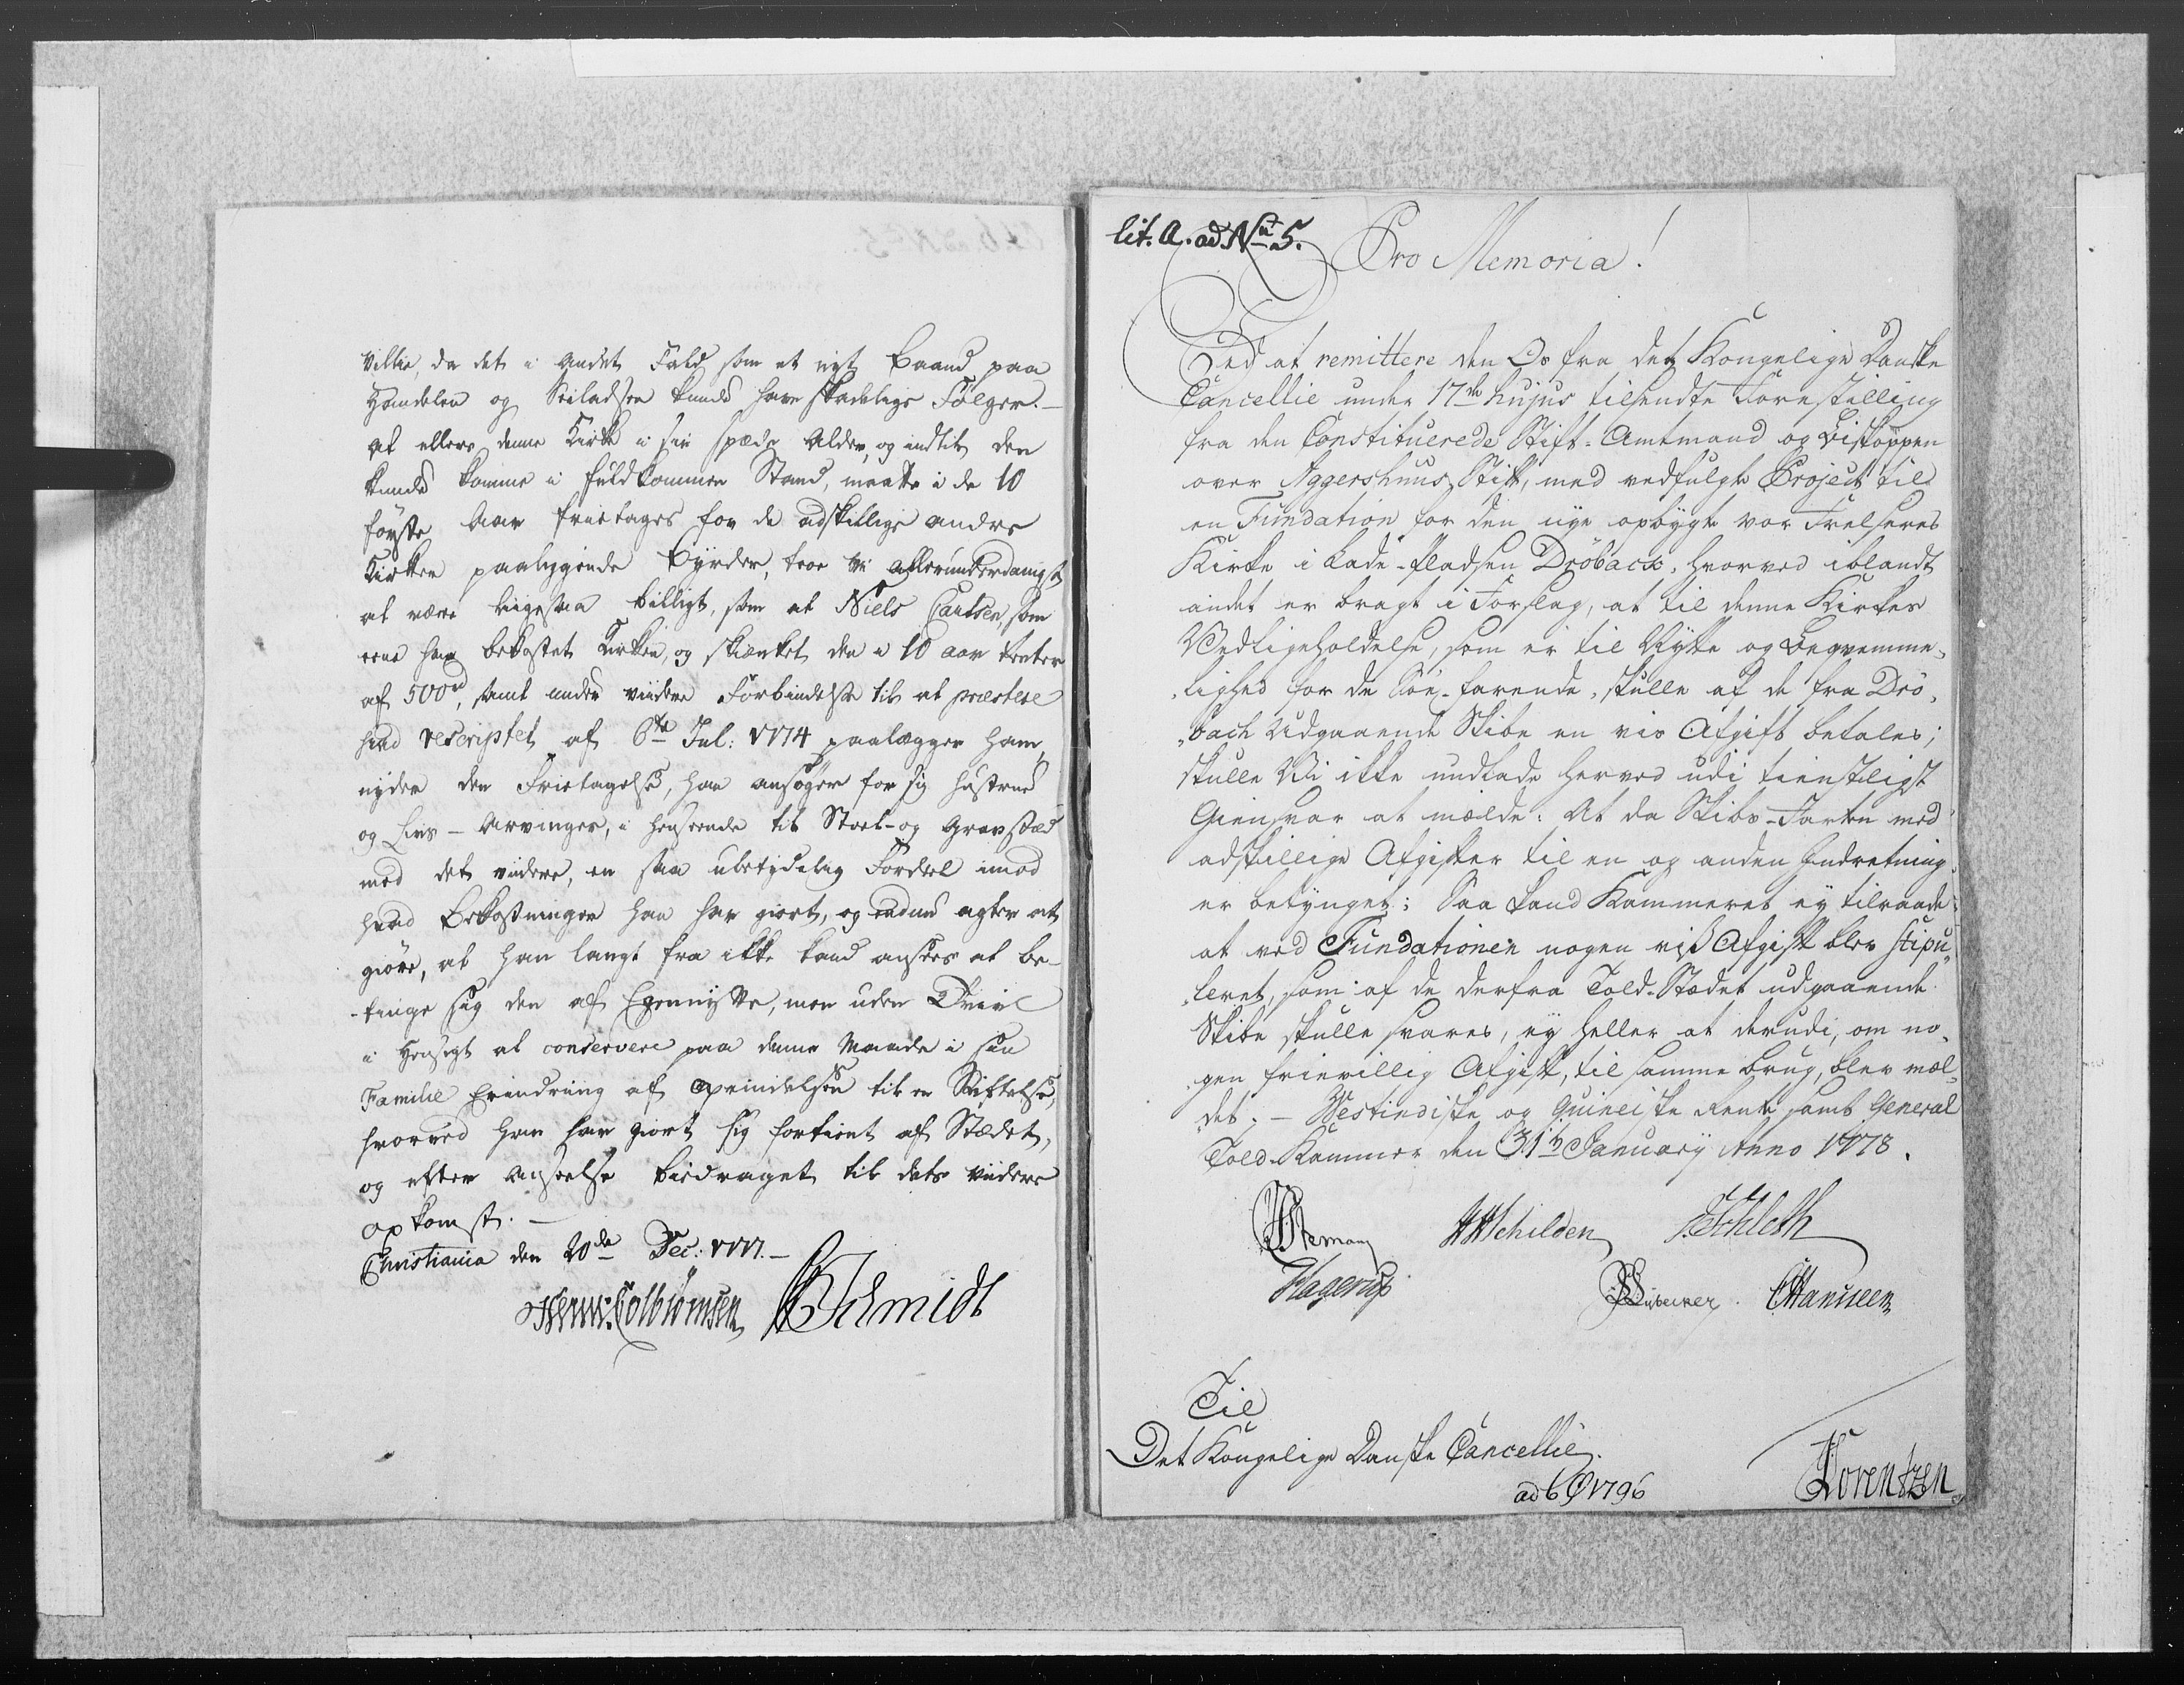 Villie, da det i andet Fald som et nyt Baand paa
Handelen og Seiladsen kunde have skadelige Følger. —
At ellers denne Kirke i sin spæde Alder, og indtil den
kunde komme i fuldkommen Stand, maatte i de 10
første Aar fritages for de adskillige andre
Kirker paaliggende Byrder, troe vi allerunderdanigst
at være ligesaa billigt, som at Niels Carlsen, som
eene har bekostet Kirken, og skienket den i 10 aar Renter
af 500rd, samt under viidere Forbindelse til at præstere
hvad rescriptet af 6te Jul: 1774 paalægger ham,
nyder den Fritagelse, han ansøger for sig hustrue
og Livs-Arvinger, i henseende til Stoel- og Gravsted
med det viidere, en saa ubetydelig Fordeel imod
hvad Bekostninger han har giort, og endnu agter at
giøre, at han langt fra ikke kand ansees at be-
tinge sig den af Egennytte, men uden Tvivl
i Hensigt at conservere paa denne Maade i sin
Familie Erindring af Oprindelsen til en Stiftelse,
hvorved han har giort sig fortient af Stædet,
og efter Anseelse bidraget til dets viidere
opkomst. —
Christiania den 20de Dec: 1777. —
Colbiørnsen Schmidt
lit. A. ad No 5.
Pro Memoria!
Ved at remittere den Os fra det Kongelige Danske
Cancellie under 17de hujus tilsendte Forestilling
fra den Constituerede Stift-Amtmand og Biskoppen
over Aggershuus Stift, med vedfulgte Project til
en Fundation for den nye opbygte vor Frelseres
Kirke i Lade-Pladsen Dröback, hvorved iblandt
andet er bragt i Forslag, at til denne Kirkes
Vedligeholdelse, som er til Nytte og Beqvemme-
lighed for de Söe-farende, skulle af de fra Drö-
bach Udgaaende Skibe en vis Afgift betales;
skulle Vi ikke undlade herved udi tienstligst
Giensvar at melde: At da Skibs-Farten med
adskillige Afgifter til en og anden Indretning
er betynget: Saa kand Kammeret ey tilraade
at ved Fundationen nogen viß Afgift blev stipu-
leret, som af de derfra Told-Stædet udgaaende
Skibe skulle svares, ey heller at derudi, om no-
gen frievillig Afgift, til samme brug, blev mel-
det. — Vestindiske og Guineiske Rente samt General
Told-Kammer den 31te January Anno 1778.
Stemann Schilden Schleth
Hagerup Lübecker Hansen
Til
Det Kongelige Danske Cancellie.
ad 6 1796
Lorentzen